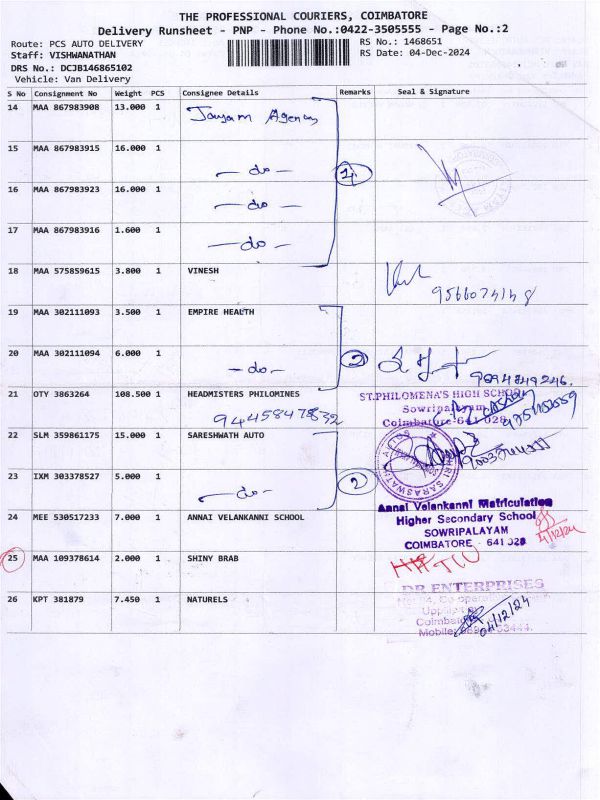 THE PROFESSIONAL COURIERS, COIMBATORE
Delivery Runsheet - PNP - Phone No.:0422-3505555 - Page No.:2
Route: PCS AUTO DELIVERY
RS No.: 1468651
Staff: VISHWANATHAN
RS Date: 04-Dec-2024
DRS No.: DCJB146865102
Vehicle: Van Delivery
S No Consignment No Weight PCS Consignee Details Remarks Seal & Signature
14 MAA 867983908 13.000 1 Jayam Agency
15 MAA 867983915 16.000 1 - do -
4
16 MAA 867983923 16.000 1 - do -
17 MAA 867983916 1.600 1 - do -
18 MAA 575859615 3.800 1 VINESH
9566074148
19 MAA 302111093 3.500 1 EMPIRE HEALTH
20 MAA 302111094 6.000 1 - do - 2
9894849246.
21 OTY 3863264 108.500 1 HEADMISTERS PHILOMINES
9445847832
ST.PHILOMENA'S HIGH SCHOOL
Sowripalayam
Coimbatore-641 028
22 SLM 359861175 15.000 1 SARESHWATH AUTO
23 IXM 303378527 5.000 1 - do - 2
SRI SARASWATHI AUTOS
24 MEE 530517233 7.000 1 ANNAI VELANKANNI SCHOOL
Annai Velankanni Matriculation
Higher Secondary School
SOWRIPALAYAM
COIMBATORE - 641 028
4/12/24
25 MAA 109378614 2.000 1 SHINY BRAB
26 KPT 381879 7.450 1 NATURELS
DR ENTERPRISES
04/12/24
Mobile: